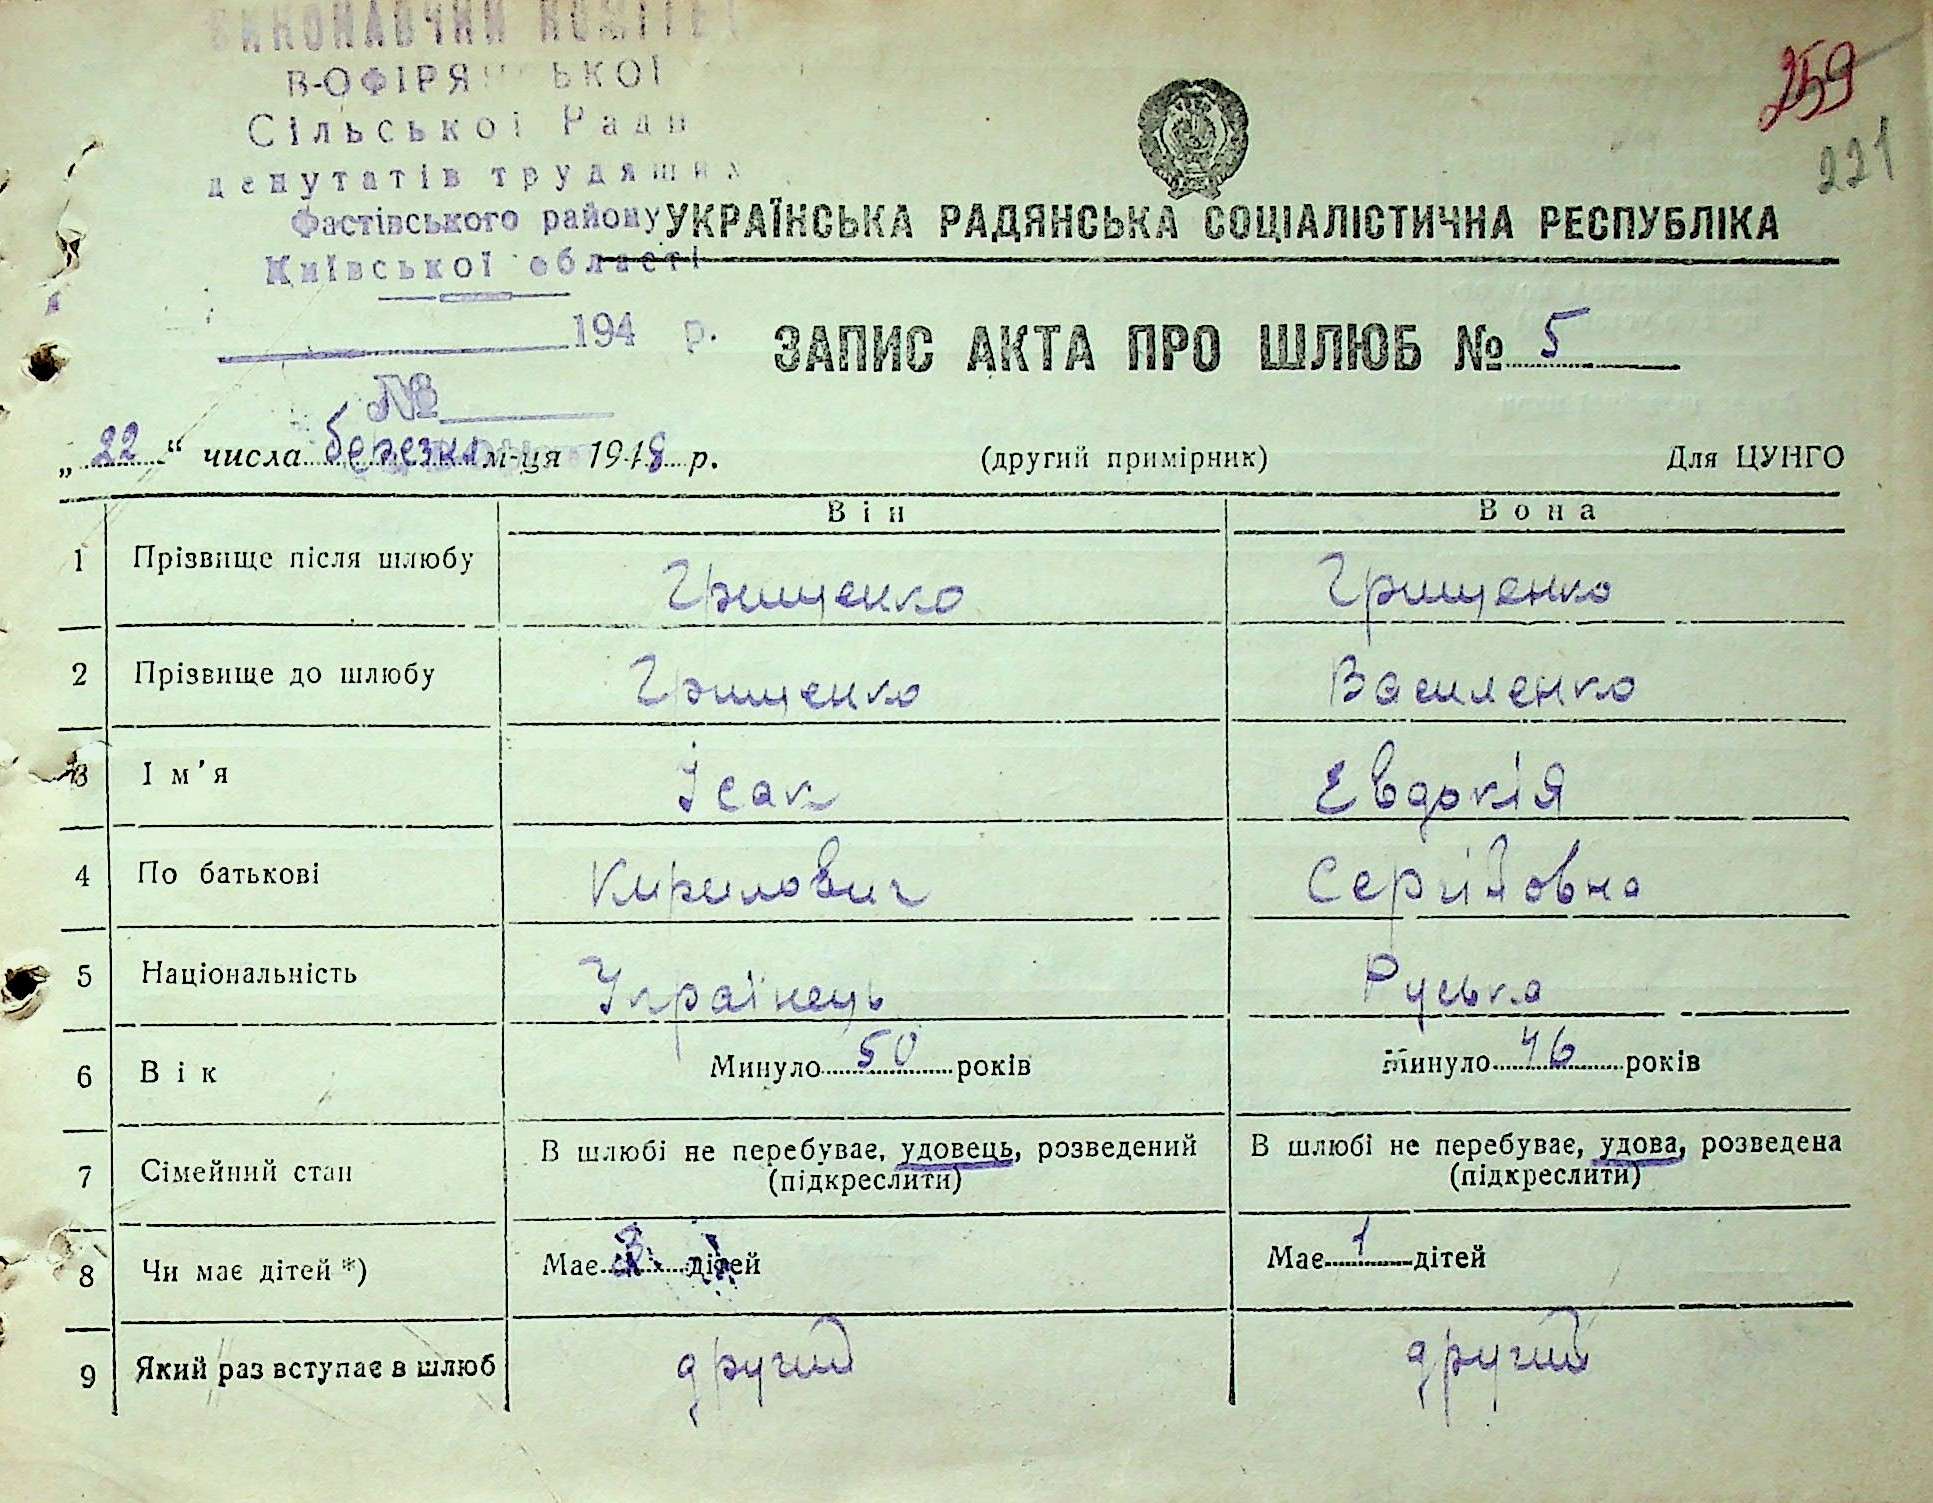 ВИКОНАВЧИЙ КОМІТЕТ
В-ОФІРЯНСЬКОЇ
Сільської Ради
депутатів трудящих
Фастівського району
Київської області
194 р.
№
259
221
УКРАЇНСЬКА РАДЯНСЬКА СОЦІАЛІСТИЧНА РЕСПУБЛІКА
ЗАПИС АКТА ПРО ШЛЮБ № 5
„22“ числа березня м-ця 1948 р. (другий примірник) Для ЦУНГО
Він Вона
1 Прізвище після шлюбу Грищенко Грищенко
2 Прізвище до шлюбу Грищенко Василенко
3 Ім'я Ісак Евдокія
4 По батькові Кирилович Сергійовна
5 Національність Українець Руська
6 Вік Минуло 50 років Минуло 46 років
7 Сімейний стан В шлюбі не перебуває, удовець, розведений В шлюбі не перебуває, удова, розведена
(підкреслити) (підкреслити)
8 Чи має дітей *) Має 3 дітей Має 1 дітей
9 Який раз вступає в шлюб другий другий